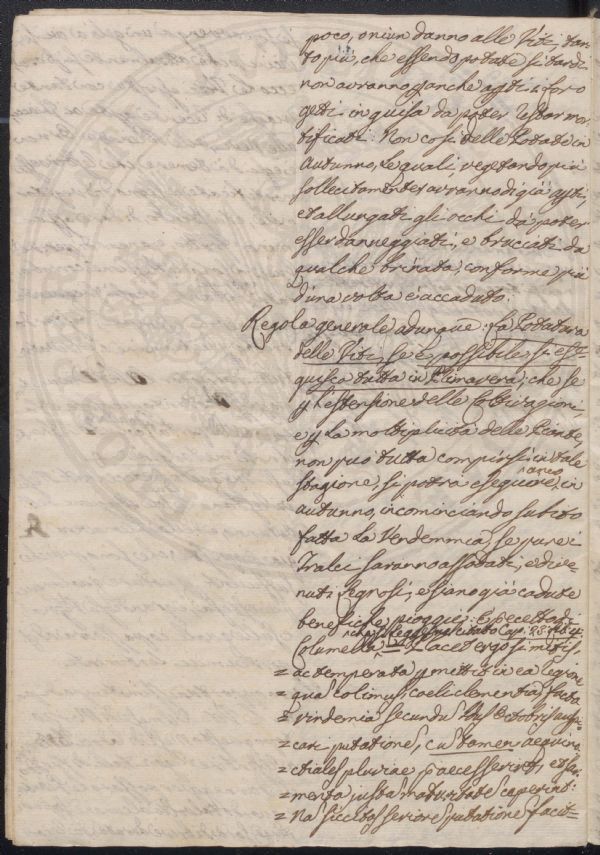 poco, o niun danno alle Viti, tan-
to più, che essendo potate sì tardi
non avranno per anche agiti i loro
getti in guisa da poter restar mor-
tificati: Non così delle Potate in
Autunno, le quali vegetando più
sollecitamente avranno di già
et allungati gli occhi da poter
esser danneggiati, e bruciati da
qualche brinata, conforme più
d'una volta è accaduto.
Regola generale adunque: La Potatura
delle Viti, se è possibile, si ese-
guisca tutta in Primavera; che se
p l'estensione delle Coltivazioni,
e p la moltiplicità delle Piante,
non può tutta compiersi in tale
stagione, si potrà eseguire anco in
autunno, incominciando subito
fatta la Vendemmia, se pure i
Tralci saranno assodati, e dive-
nuti legnosi, e siano già cadute
benefiche pioggie: E
che si legge nel citato Cap. 28
Columella Placet ergo si mitis
= ac temperata pmittit in ea regione
= qua colimus coeli clementia, facta
= vindemia secundu Idus Octobris auspi-
= cari putatione, cu tamen aequino-
= ctiales pluviae paecesserint, et sar-
= menta justa maturitate caperint:
= Na siccitas seriore putatione facit=